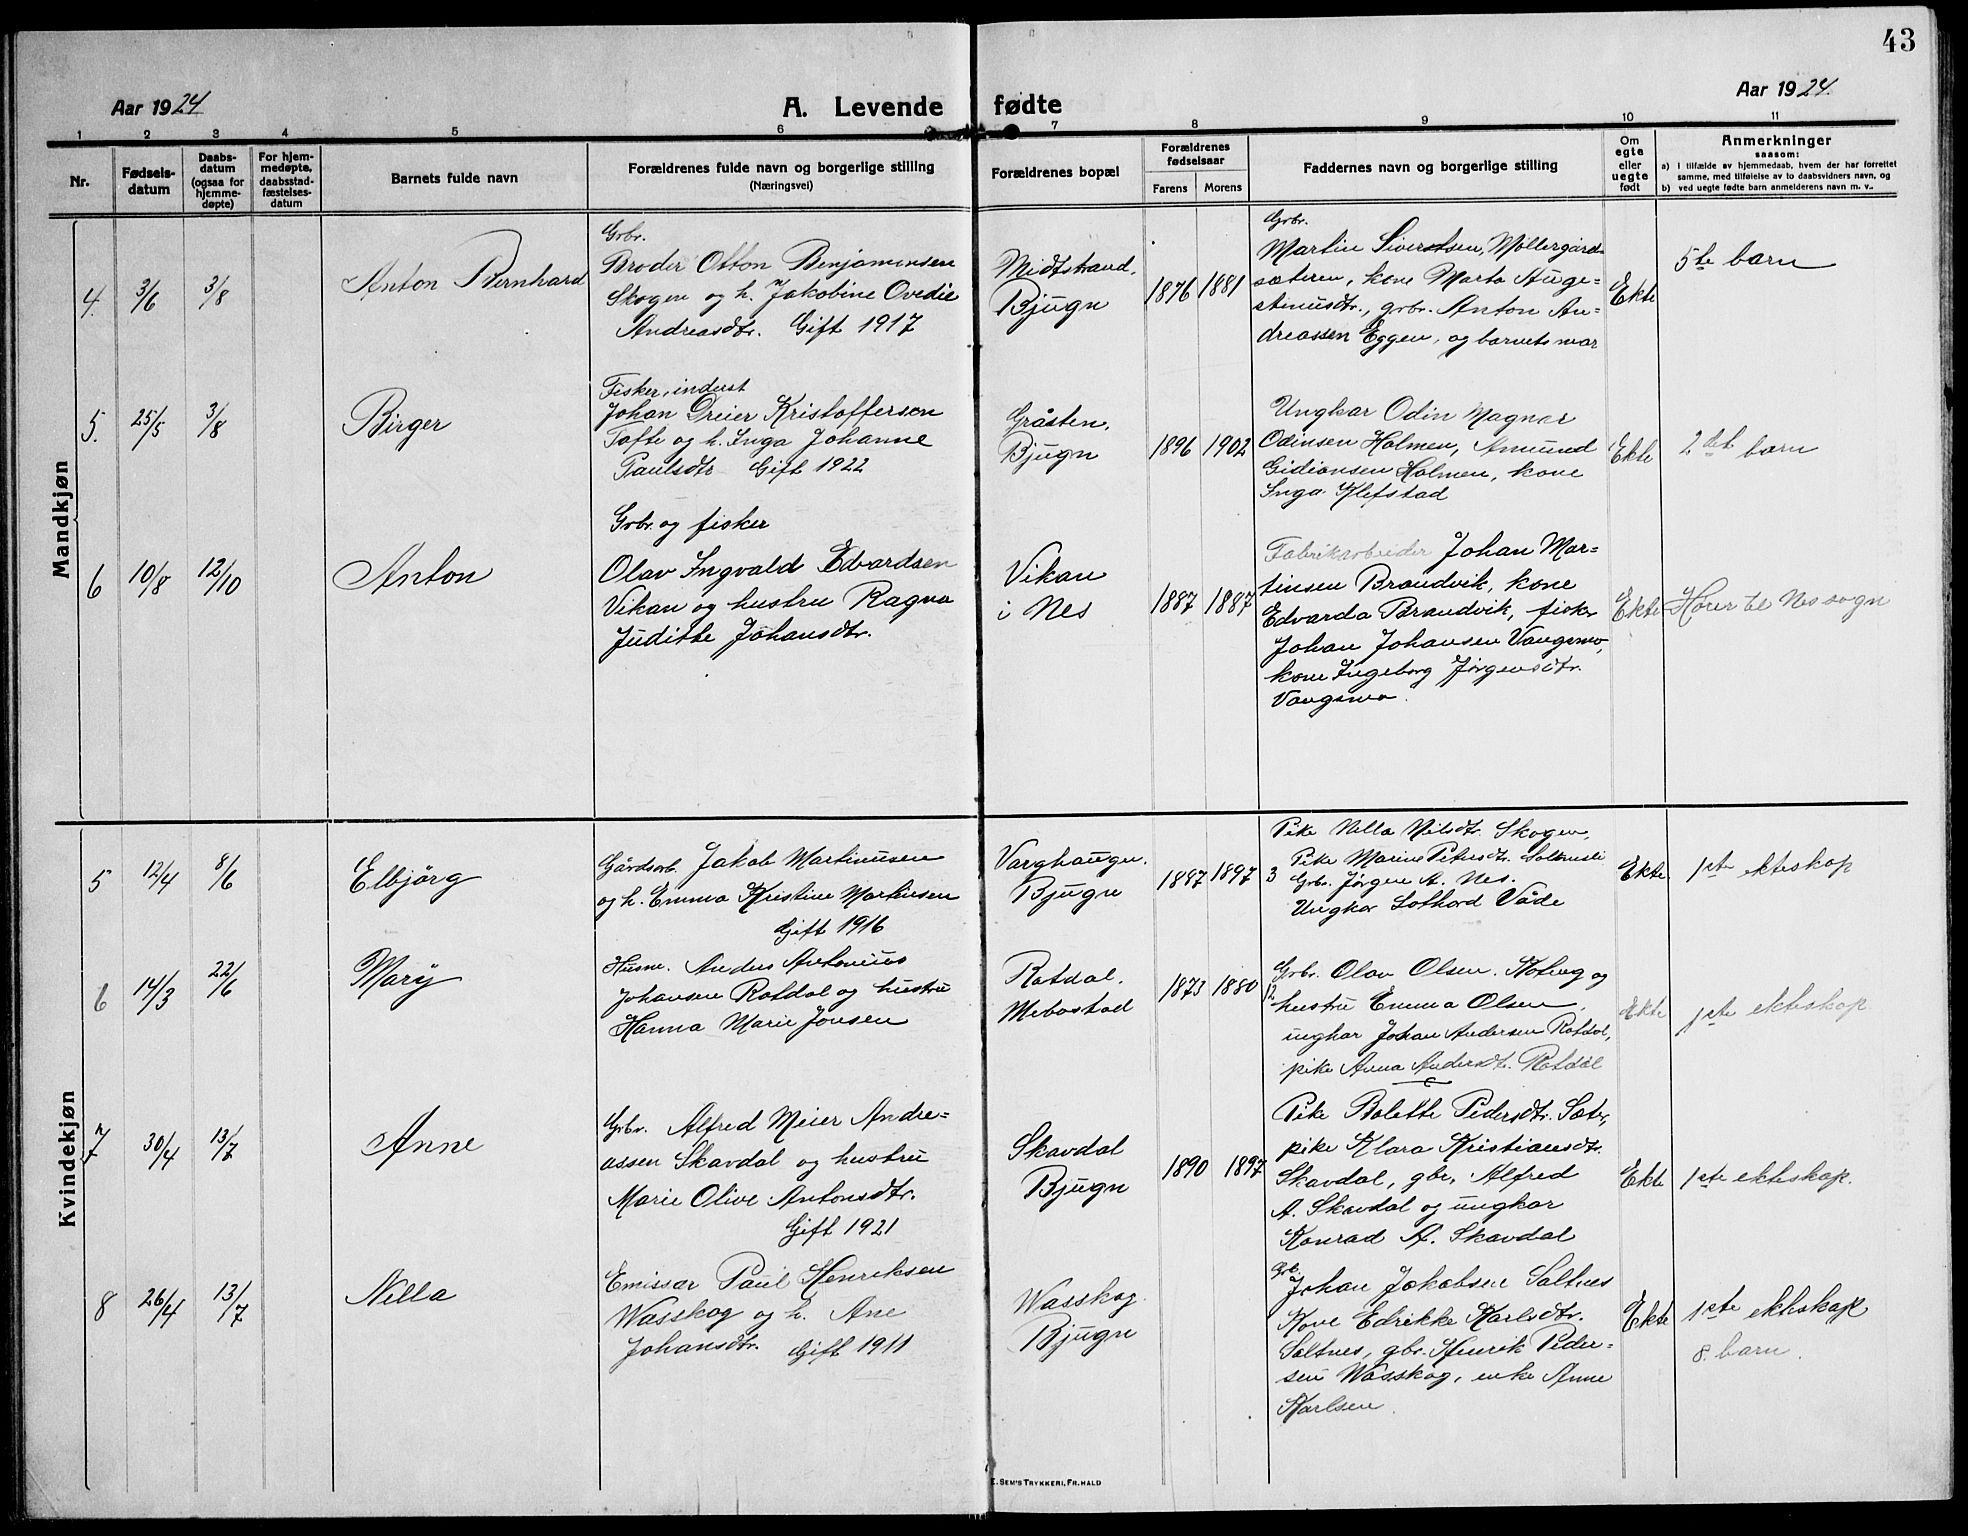 43
Aar 1924
A. Levende fødte
Aar 1924.
1 2 3 4 5 6 7 8 9 10 11
Nr.
Fødsels-
datum
Daabs-
datum
(ogsaa for
hjemme-
døpte)
For hjem-
medøpte,
daabsstad-
fæstelses-
datum
Barnets fulde navn
Forældrenes fulde navn og borgerlige stilling
(Næringsvei)
Forældrenes bopæl
Forældrenes
fødselsaar
Farens Morens
Faddernes navn og borgerlige stilling
Om
egte
eller
uegte
født
Anmerkninger
saasom:
a) I tilfælde av hjemmedaab, hvem der har forrettet
samme, med tilføielse av to daabsvidners navn, og
b) ved uegte fødte barn anmelderens navn m. v..
Mandkjøn
4. 3/6 3/8
Anton Bernhard
Grbr.
Broder Otton Benjaminsen
Skogen og h. Jakobine Ovedie
Andreasdtr. Gift 1917
Midtstrand,
Bjugn
1876 1881
Grbr.
Martin Sivertsen, Møllergård-
sæteren, kone Marta Auge-
stinusdtr., grbr. Anton An-
dreassen Eggen, og barnets mor
Ekte
5te barn
5. 25/5 3/8
Birger
Fisker, indust
Johan Dreier Kristoffersen
Tofte og h. Inga Johanne
Paulsdtr Gift 1922
Gråsten,
Bjugn
1896 1902
Ungkar Odin Magnar
Odinsen Holmen, Amund
Gidionsen Holmen, kone
Inga Klefstad
Ekte
2det barn
6 10/8 12/10
Anton
Grbr. og fisker
Olav Ingvald Edvardsen
Vikan og hustru Ragna
Juditte Johansdtr.
Vikan
i Nes
1887 1887
Fabrikarbeider Johan Mar-
tinsen Brandvik, kone
Edvarda Brandvik, fisker
Johan Johansen Vangsmo,
kone Ingeborg Jørgensdtr.
Vangsmo.
Ekte
Hører til Nes sogn
Kvindekjøn
5 12/4 8/6
Elbjörg
Gårdsarb. Jakob Martinusen
og h. Emma Kristine Martinsen
Gift 1916
Varghaugn.
Bjugn
1887 1897
Pike Nella Nilsdtr. Skogen,
Pike Marine Petersdtr.
3 Grbr. Jørgen A. Nes.
Ungkar Lothard Våde
Ekte
1ste ekteskap
6 14/3 22/6
Mary
Husm. Anders Antonius
Johansen Rotdal og hustru
Hanna Marie Jonsen
Rotdal.
Mebostad
1873 1880
Grbr. Olav Olsen. og
12 hustru Emma Olsen,
ungkar Johan Andersen Rotdal,
pike Anna Andersdtr. Rotdal
Ekte
1ste ekteskap
7 30/4 13/7
Anne
Grbr. Alfred Meier Andre-
assen Skavdal og hustru
Marie Olive Antonsdtr.
Gift 1921
Skavdal
Bjugn
1890 1897
Pike Bolette Pedersdtr. Sæter,
pike Klara Kristiansdtr.
Skavdal, gbr. Alfred
A. Skavdal og ungkar
Konrad A. Skavdal
Ekte
1ste ekteskap.
8 26/4 13/7
Nilla
Emissar Paul Henriksen
Wasskog og h. Ane
Johansdtr. Gift 1911
Wasskog
Bjugn
Grb.
Johan Jakobsen Saltnes
Kone Edrikke Karlsdtr.
Saltnes, gbr. Henrik Peder-
sen Wasskog, enke Anne
Karlsen
Ekte
1ste ekteskap
8. barn.
E. SEM'S TRYKKERI, FR.HALD